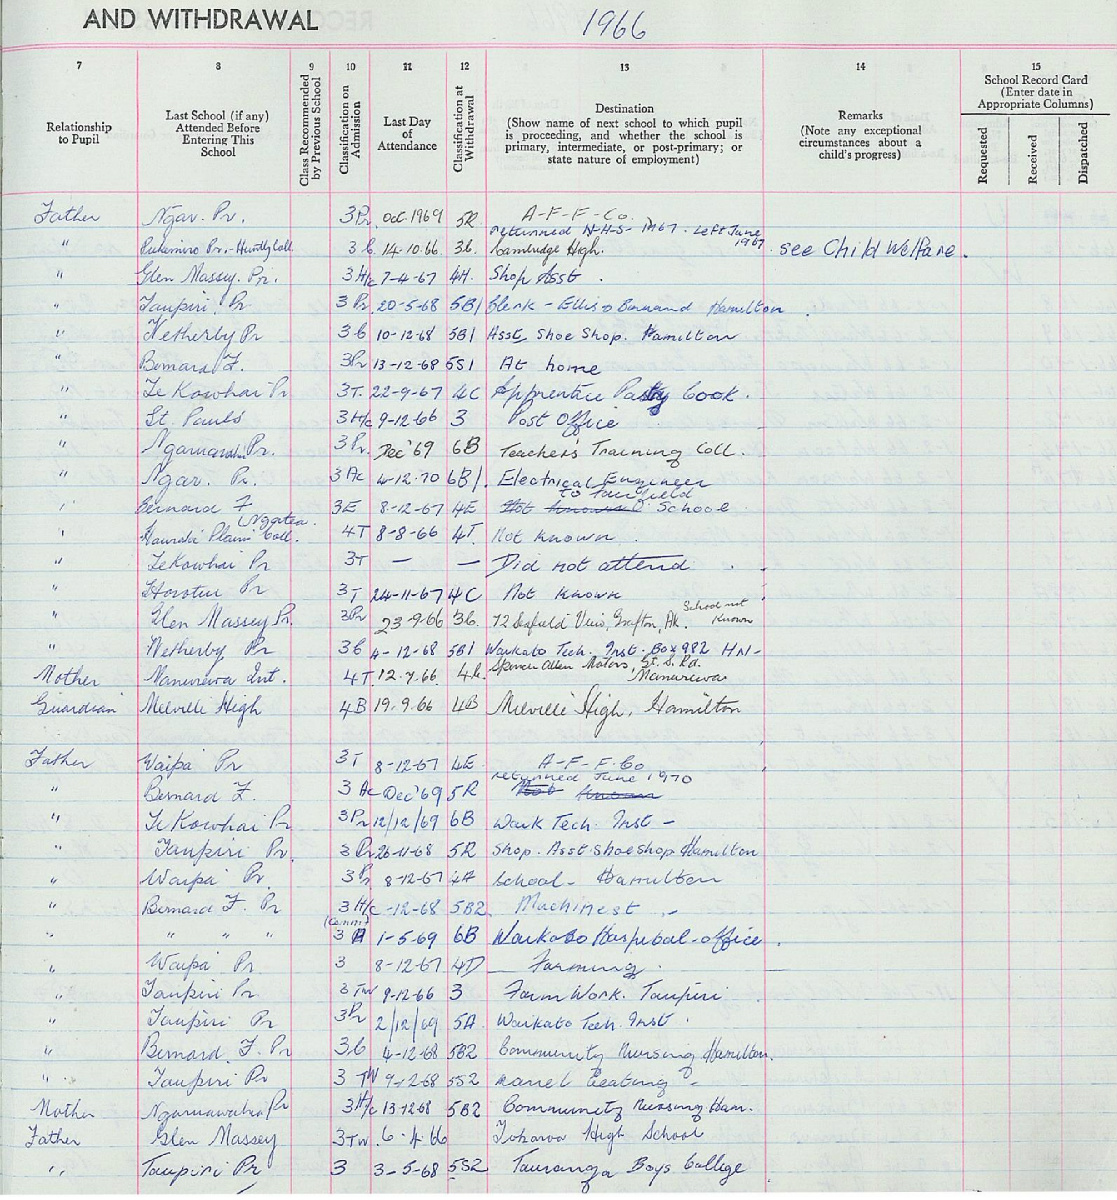 AND WITHDRAWAL 1966
7 8 9 10 11 12 13 14 15
Relationship to Pupil
Last School (if any) Attended Before Entering This School
Class Recommended by Previous School
Classification on Admission
Last Day of Attendance
Classification at Withdrawal
Destination (Show name of next school to which pupil is proceeding, and whether the school is primary, intermediate, or post-primary; or state nature of employment)
Remarks (Note any exceptional circumstances about a child's progress)
School Record Card (Enter date in Appropriate Columns)
Requested Received Dispatched
Father Ngar. Pr. 3Pr Oct. 1969 5R A-F-F-Co.
returned N-H-S- 1967. Left June 1967
" Pr.- Huntly Coll 14-10-66 Cambridge High. see Child Welfare.
" Glen Massey. Pr. 3H/c 7-4-67 4H. Shop Asst.
" Taupiri. Pr 3 Pr. 20-5-68 5B1 Clerk - Ellis & Burnand Hamilton
" Netherby Pr 10-12-68 5B1 Asst Shoe Shop. Hamilton
" Bernard F. 3Pr 13-12-68 5S1 At home
" Te Kowhai Pr 3T. 22-9-67 4C Apprentice Pastry Cook.
" St. Pauls 3H/c 9-12-66 3 Post Office
" Pr. 3Pr. Dec '69 6B Teacher's Training Coll.
" Ngar. Pr. 3Ac 4-12-70 6B1. Electrical Engineer
to Fairfield
" Bernard F 3E 8-12-67 4E Not Known School
Ngatea.
" Hauraki Plains Coll. 4T 8-8-66 4T. Not known.
" Te Kowhai Pr 3T — — Did not attend
" Horotiu Pr 3T 24-11-67 4C Not known
" Glen Massey Pr. 3Pr 23-9-66 72 Seafield View, Grafton, Ak. School not Known
" Netherby Pr 4-12-68 5B1 Waikato Tech. Inst. Box 982 HN-
Mother Manurewa Int. 4T 12.7.66 Spencer Allen Motors, Gt. S. Rd. Manurewa
Guardian Melville High 4B 19.9.66 4B Melville High, Hamilton
Father Waipa Pr 3T 8-12-67 4E A-F-F-Co
returned June 1970
" Bernard F. 3 Ac Dec '69 5R Not Known
" Te Kowhai Pr 3Pr 12/12/69 6B Waik Tech. Inst -
" Taupiri Pr. 3 Pr 5R Shop. Asst. shoeshop Hamilton
" Waipa Pr. 3Pr 8-12-67 School - Hamilton
" Bernard F. Pr 3 H/c -12-68 5B2 Machinest
(Comm)
" " " " 1-5-69 6B Waikato Hospital - office.
" Waipa Pr 3 8-12-67 4D Farming.
" Taupiri Pr 3 TW 9-12-66 3 Farm Work. Taupiri
" Taupiri Pr 3Pr 2/12/69 5A. Waikato Tech. Inst.
" Bernard. F. Pr 4-12-68 5B2 Community Nursing Hamilton.
" Taupiri Pr 3 TW 5S2
Mother Ngaruawahia Pr 3H/c 13-12-68 5B2 Community Nursing Ham.
Father Glen Massey 3TW. 6.4.66 Tokoroa High School
" Taupiri Pr 3 3-5-68 5S2 Tauranga Boys College